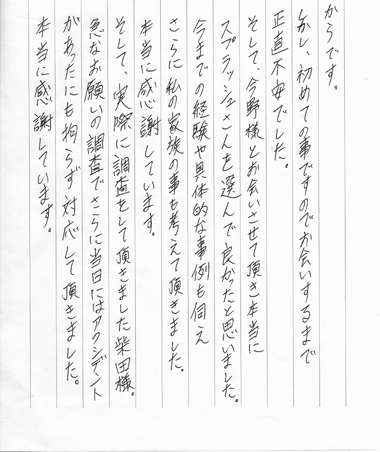 からです。
しかし、初めての事ですのでお会いするまで
正直不安でした。
そして、今野様とお会いさせて頂き本当に
スプラッシュさんを選んで良かったと思いました。
今までの経験や具体的な事例も伺え
さらに私の家族の事も考えて頂きました。
本当に感謝しています。
そして、実際に調査をして頂きました柴田様。
急なお願いの調査でさらに当日にはアクシデント
があったにも拘らず対応して頂きました。
本当に感謝しています。